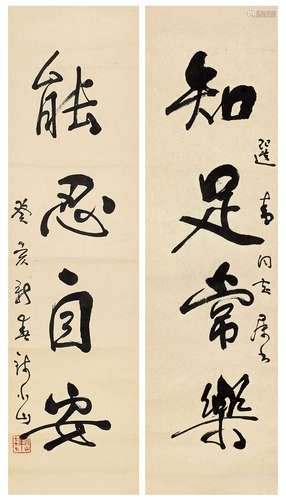 知足常樂
選青同志屬書
能忍自安
癸亥新春許小山